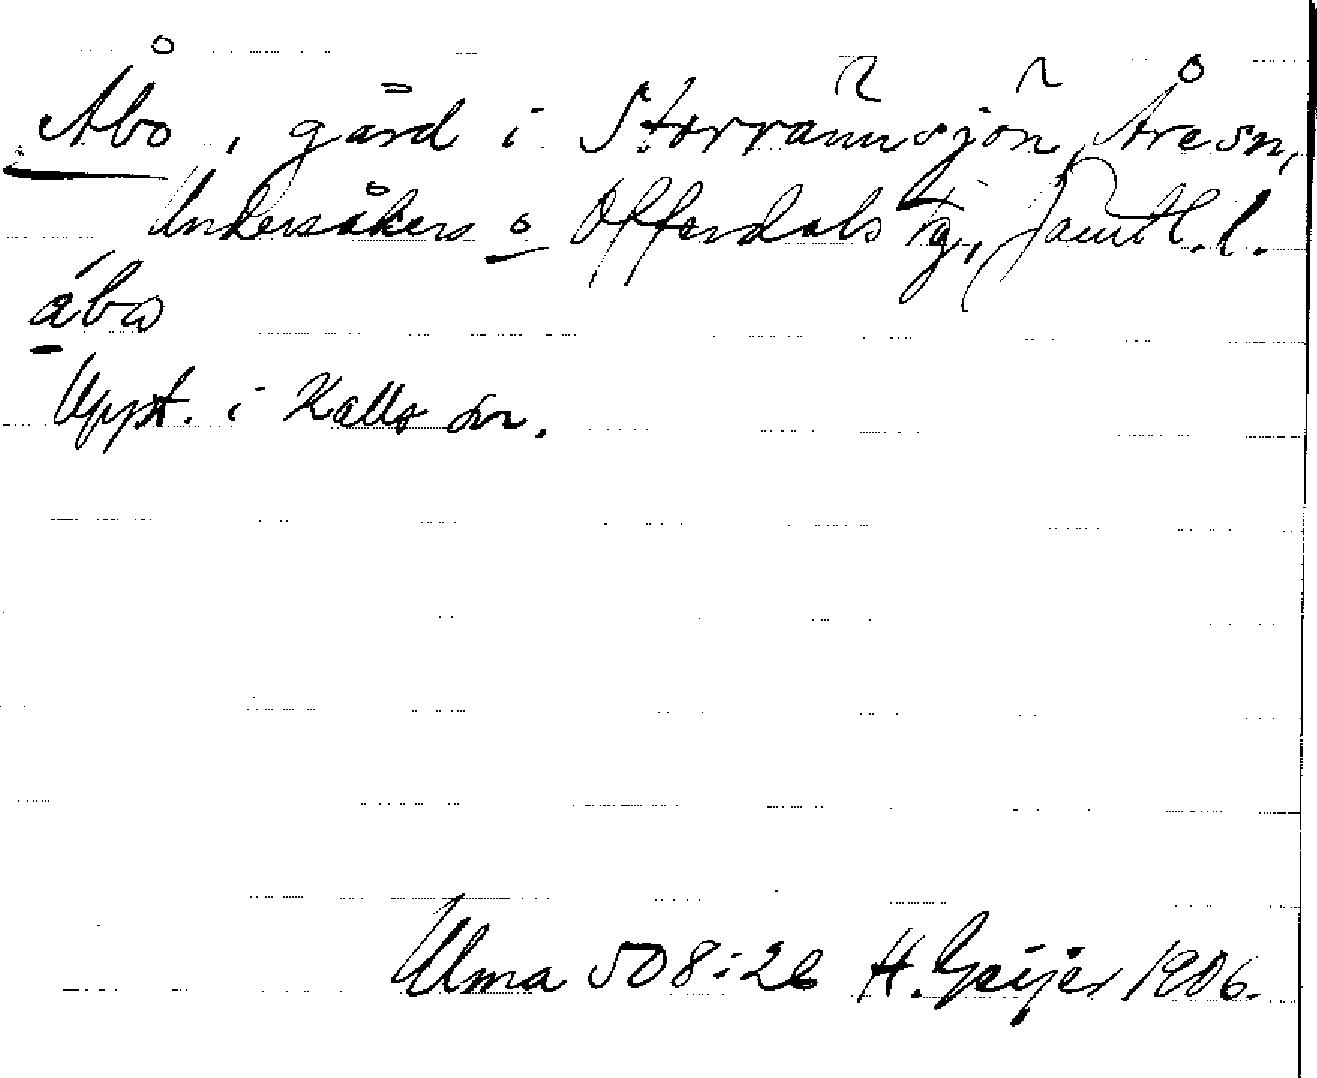 Åbo, gård i Storrännsjön, Åre sn,
Undersåkers o Offerdals tg., Jämtl. l.
åbω
Uppt. i Kalls sn.
Ulma 508:26 H. Geijer 1906.